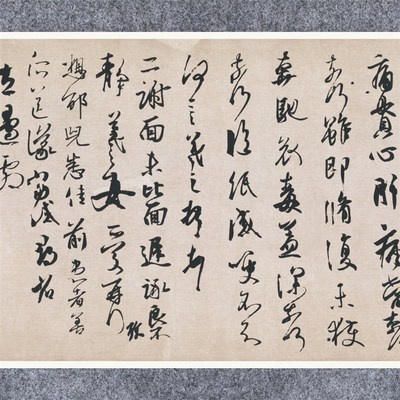 痛貫心肝痛當奈
奈何雖即脩復未獲
奔馳哀毒益深奈何
奈何臨紙感哽不知
何言羲之頓首
二謝面未比面遲詠良不
靜羲之女愛再拜
想邵兒悉佳前患者善
所送議當試尋省
左邊劇